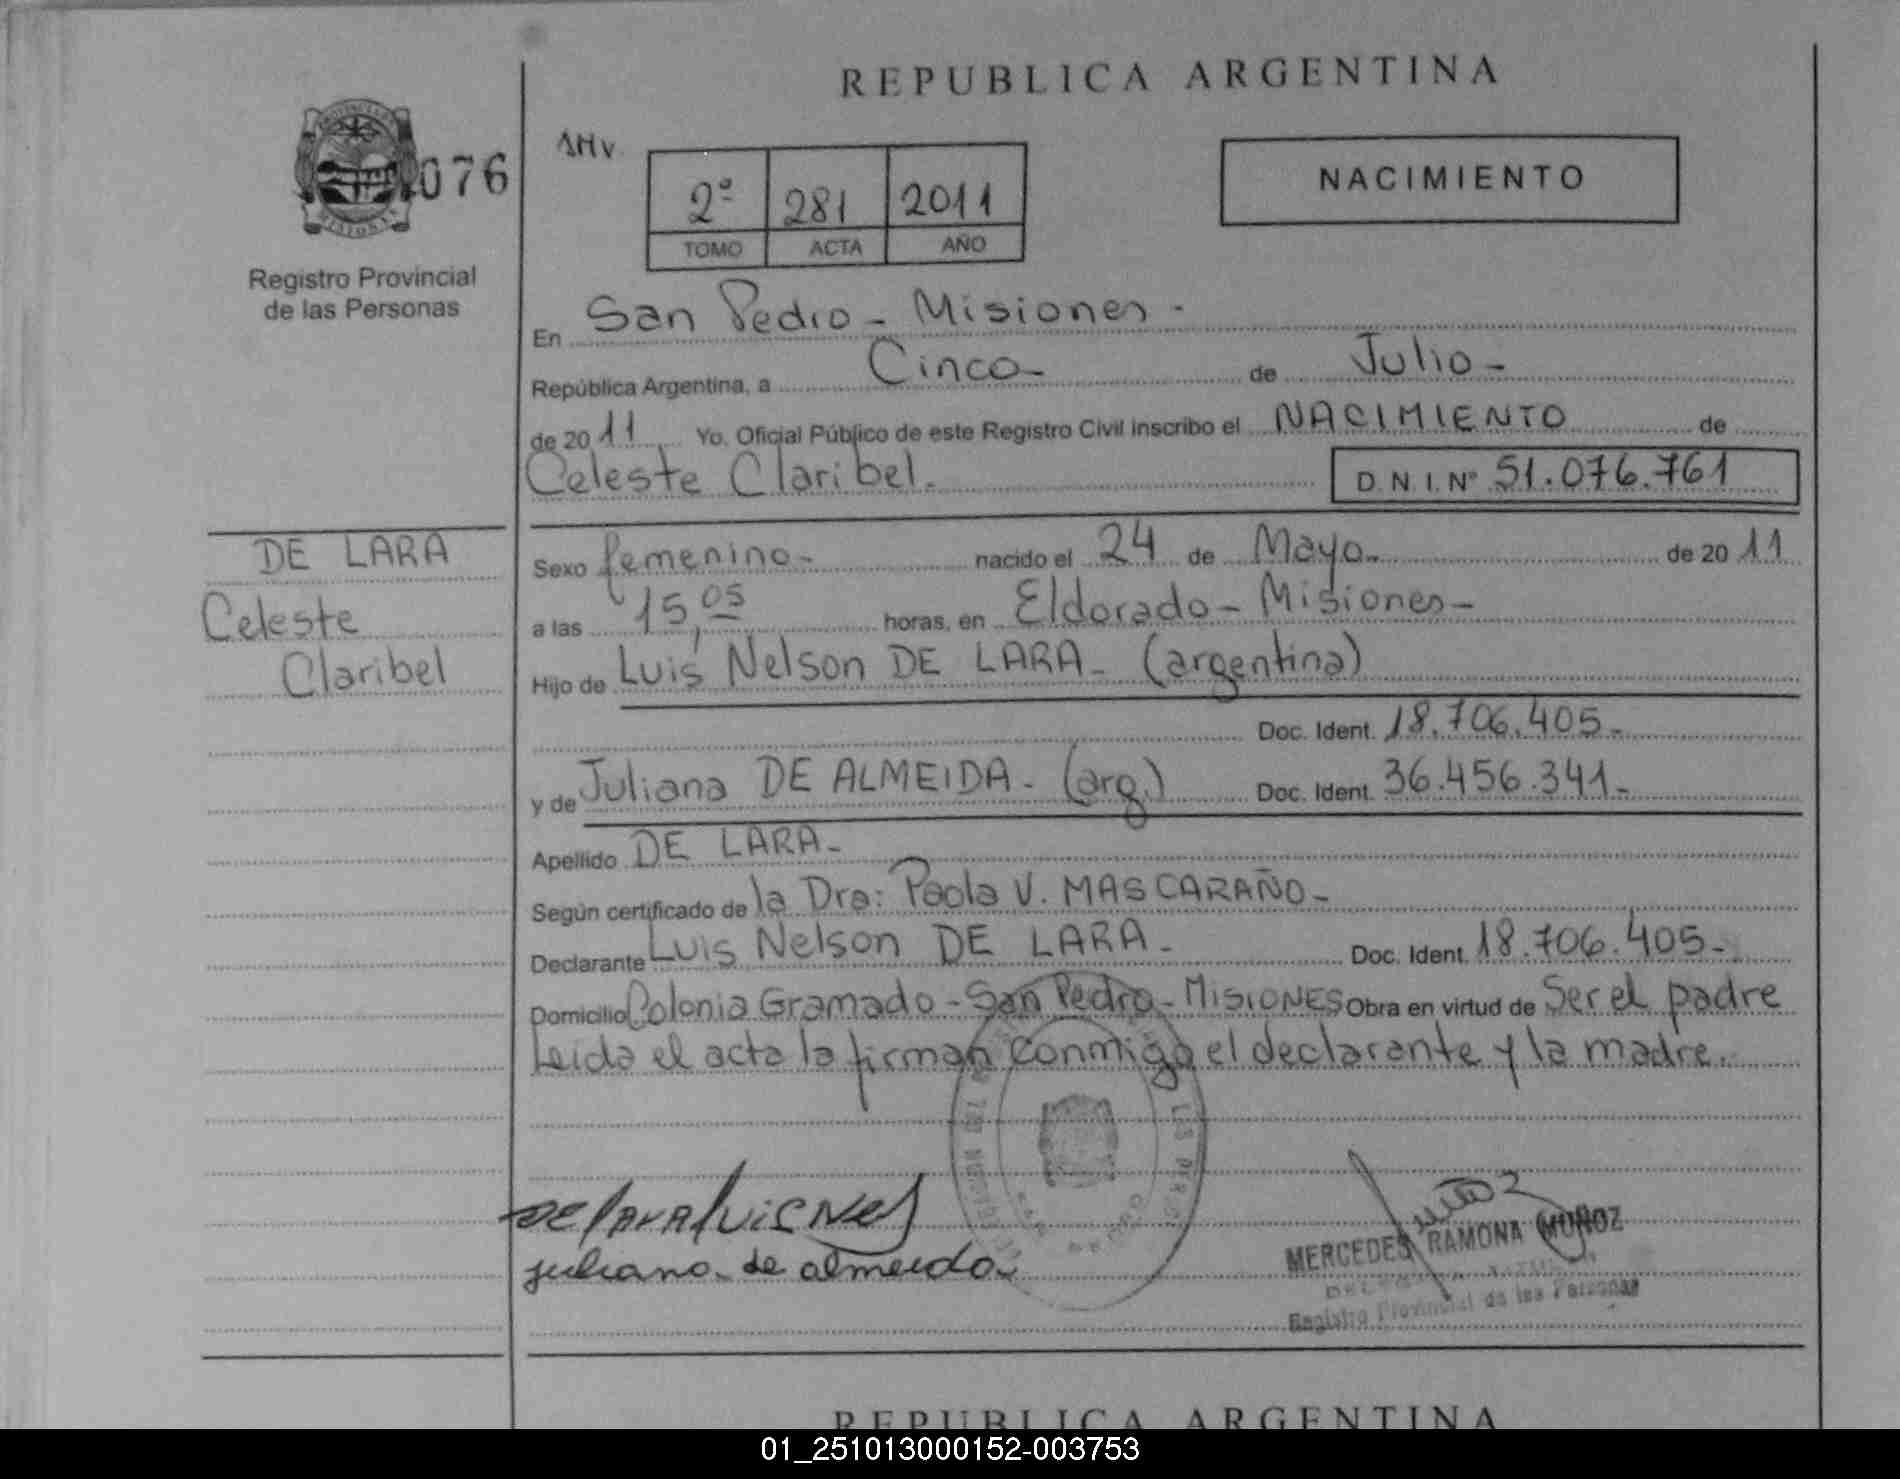 REPUBLICA ARGENTINA
076
Registro Provincial
de las Personas
AHV
2º 281 2011
TOMO ACTA AÑO
NACIMIENTO
En San Pedro - Misiones -
República Argentina, a Cinco - de Julio -
de 2011 Yo. Oficial Público de este Registro Civil inscribo el NACIMIENTO de
Celeste Claribel. D.N.I. Nº 51.076.761
DE LARA
Celeste
Claribel
Sexo femenino - nacido el 24 de Mayo - de 2011
a las 15,05 horas, en Eldorado - Misiones -
Hijo de Luis Nelson DE LARA - (argentina)
Doc. Ident. 18.706.405 -
y de Juliana DE ALMEIDA - (arg.) Doc. Ident. 36.456.341 -
Apellido DE LARA -
Según certificado de la Dra: Paola V. MASCARAÑO -
Declarante Luis Nelson DE LARA - Doc. Ident. 18.706.405 -
Domicilio Colonia Gramado - San Pedro - MISIONES Obra en virtud de Ser el padre
Leida el acta la firman conmigo el declarante y la madre.
De lara luis Nel
juliana de almeida
MERCEDES RAMONA MUÑOZ
Registro Provincial de las Personas
REPUBLICA ARGENTINA
01_251013000152-003753